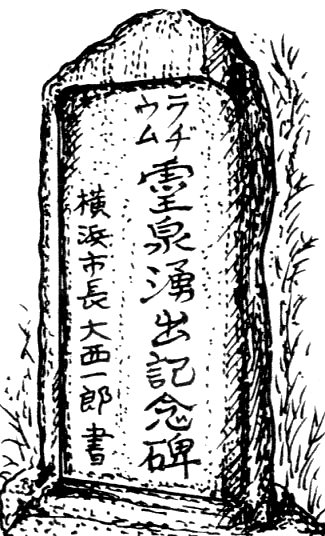 ラヂウム霊泉湧出記念碑
横浜市長大西一郎書